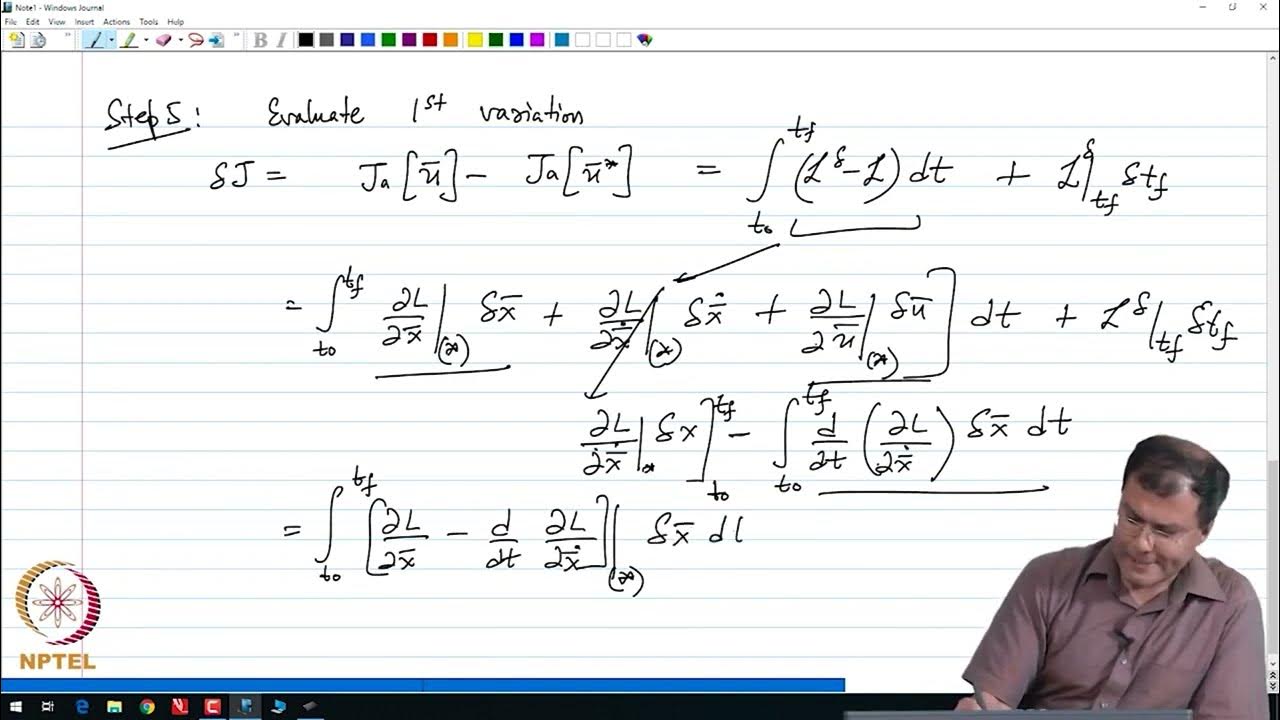 Note1 - Windows Journal
File Edit View Insert Actions Tools Help
B I
Step 5: Evaluate 1st variation
δJ = Ja[ū] - Ja[ū*] = ∫_{t₀}^{tf} (ℒ^δ - ℒ) dt + ℒ^δ|_{tf} δtf
= ∫_{t₀}^{tf} ∂L/∂x̄|_(*) δx̄ + ∂L/∂ẋ̄|_(*) δẋ̄ + ∂L/∂ū|_(*) δū ] dt + ℒ^δ|_{tf} δtf
∂L/∂ẋ̄|_* δx ]_{t₀}^{tf} - ∫_{t₀}^{tf} d/dt (∂L/∂ẋ̄) δx̄ dt
= ∫_{t₀}^{tf} [∂L/∂x̄ - d/dt ∂L/∂ẋ̄]|_(*) δx̄ d
NPTEL